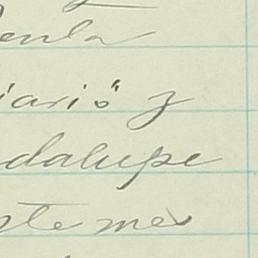 enta
iario" y
dalupe
ste mes